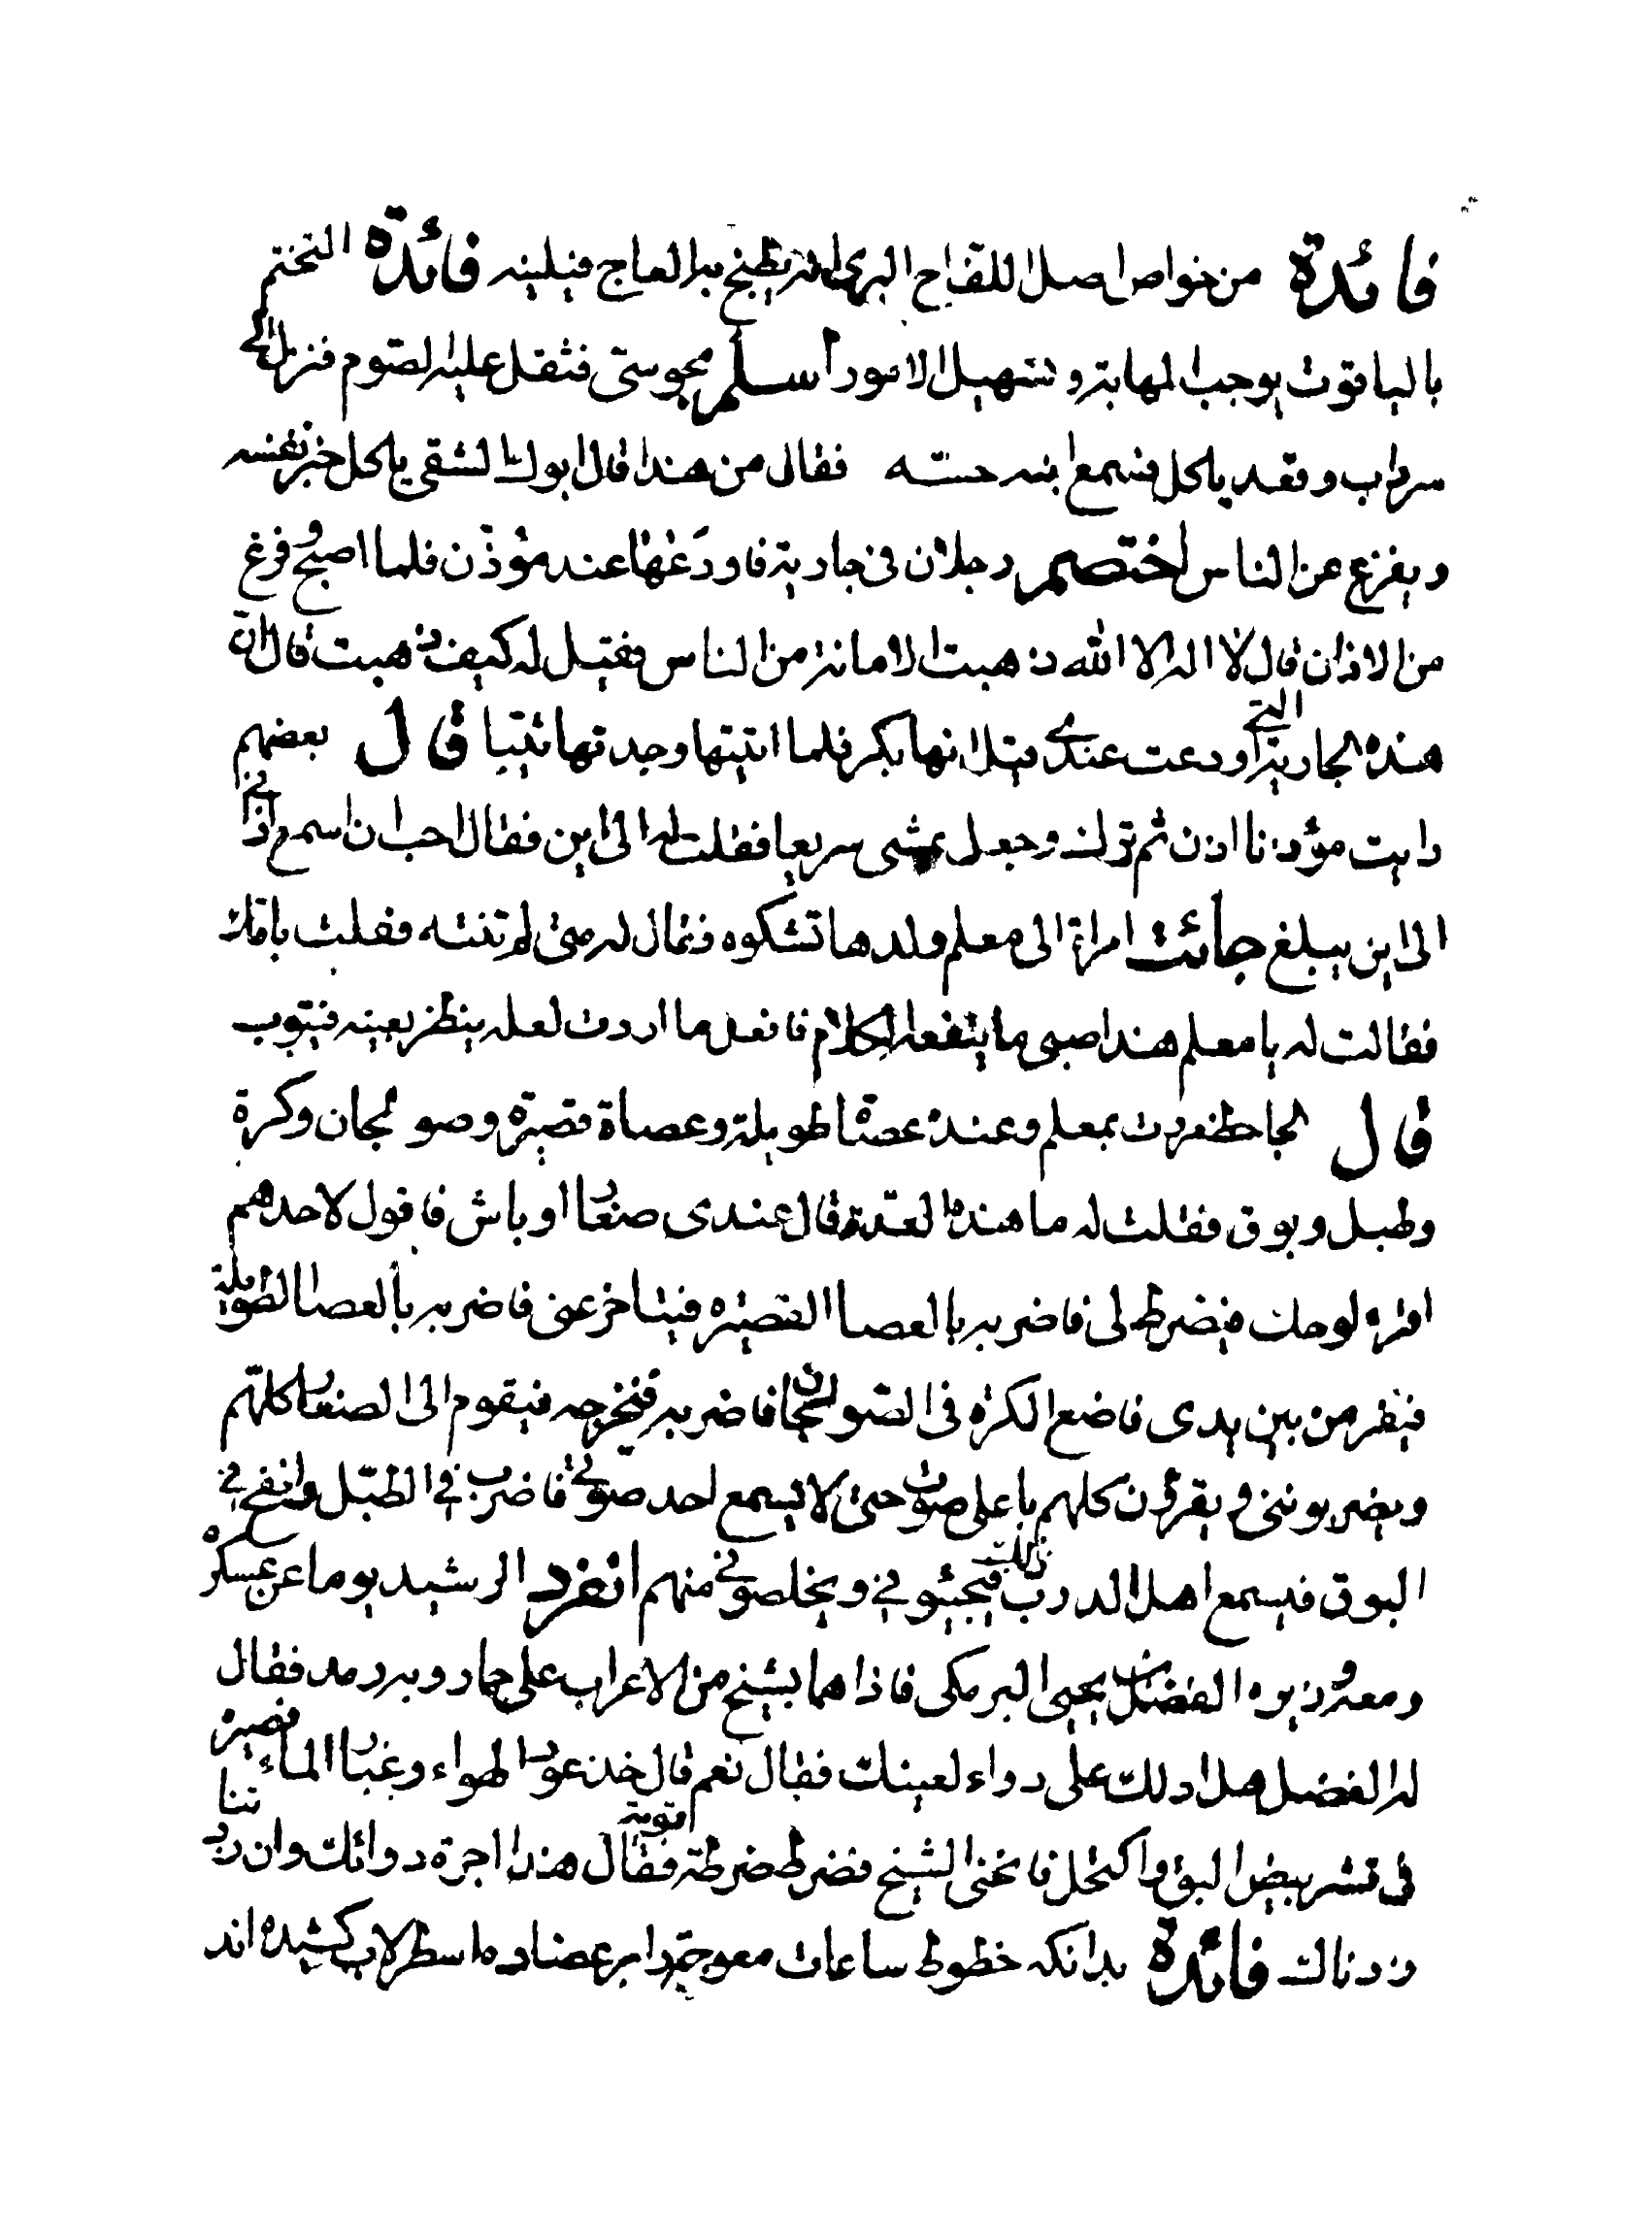 فائدة من خواص اصل اللقاح البری انه يطبخ به العاج فيلينه فائدة التختم
بالياقوت يوجب المهابة و تسهيل الامور أسلم مجوسی فثقل عليه الصوم فنزل الی
سرداب وقعد ياكل فسمع ابنه حسه فقال من هذا قال ابوك الشقی ياكل خبز نفسه
ويفزع من الناس اختصم رجلان فی جارية فاودعاها عند مؤذن فلما اصبح و فرغ
من الاذان قال لا اله الا الله ذهبت الامانة من الناس فقيل له كيف ذهبت قال ان
هذه الجارية التی اودعت عندی قيل انها بكر فلما اتيتها وجدتها ثيبا قال بعضهم
رايت مؤذنا اذن ثم ترك وجعل يمشی سريعا فقلت له الی اين فقال احب ان اسمع اذانی
الی اين يبلغ جائت امراة الی معلم ولدها تشكوه فقال له متی لم تنته فعلت بامك
فقالت له يا معلم هذا صبی ما ينفعه الكلام فافعل ما اردت لعله ينظر بعينه فيتوب
قال الجاحظ مررت بمعلم وعنده عصا طويلة وعصاة قصيرة وصولجان وكرة
وطبل وبوق فقلت له ما هذه العدة قال عندی صغار اوباش فاقول لاحدهم
اقرء لوحك فيضرط لی فاضربه بالعصا القصيرة فيتاخر عنی فاضربه بالعصا الطويلة
فيفر من بين يدی فاضع الكرة فی الصولجان فاضربه فتخرجه فيقوم الی الصغار كلهم
ويضربوننی و يقرؤن كلهم باعلی صوت حتی لا يسمع احد صوتی فاضرب فی الطبل وانفخ فی
البوق فيسمع اهل الدرب ذلك فيجيئونی ويخلصونی منهم انفرد الرشيد يوما عن عسكره
ومعه وزيره الفضل بن يحيی البرمكی فاذا هما بشيخ من الاعراب علی حمار وبه رمد فقال
له الفضل هل ادلك علی دواء لعينك فقال نعم قال خذ عود الهواء وغبار الماء فصيره
فی قشر بيض البق واكتحل فانحنی الشيخ فضرط ضرطة قوية فقال هذا اجرة دوائك وان زدتنا
زدناك فائدة بدانكه خطوط ساعات معوجه را بر عضاده اسطرلاب كشيده اند